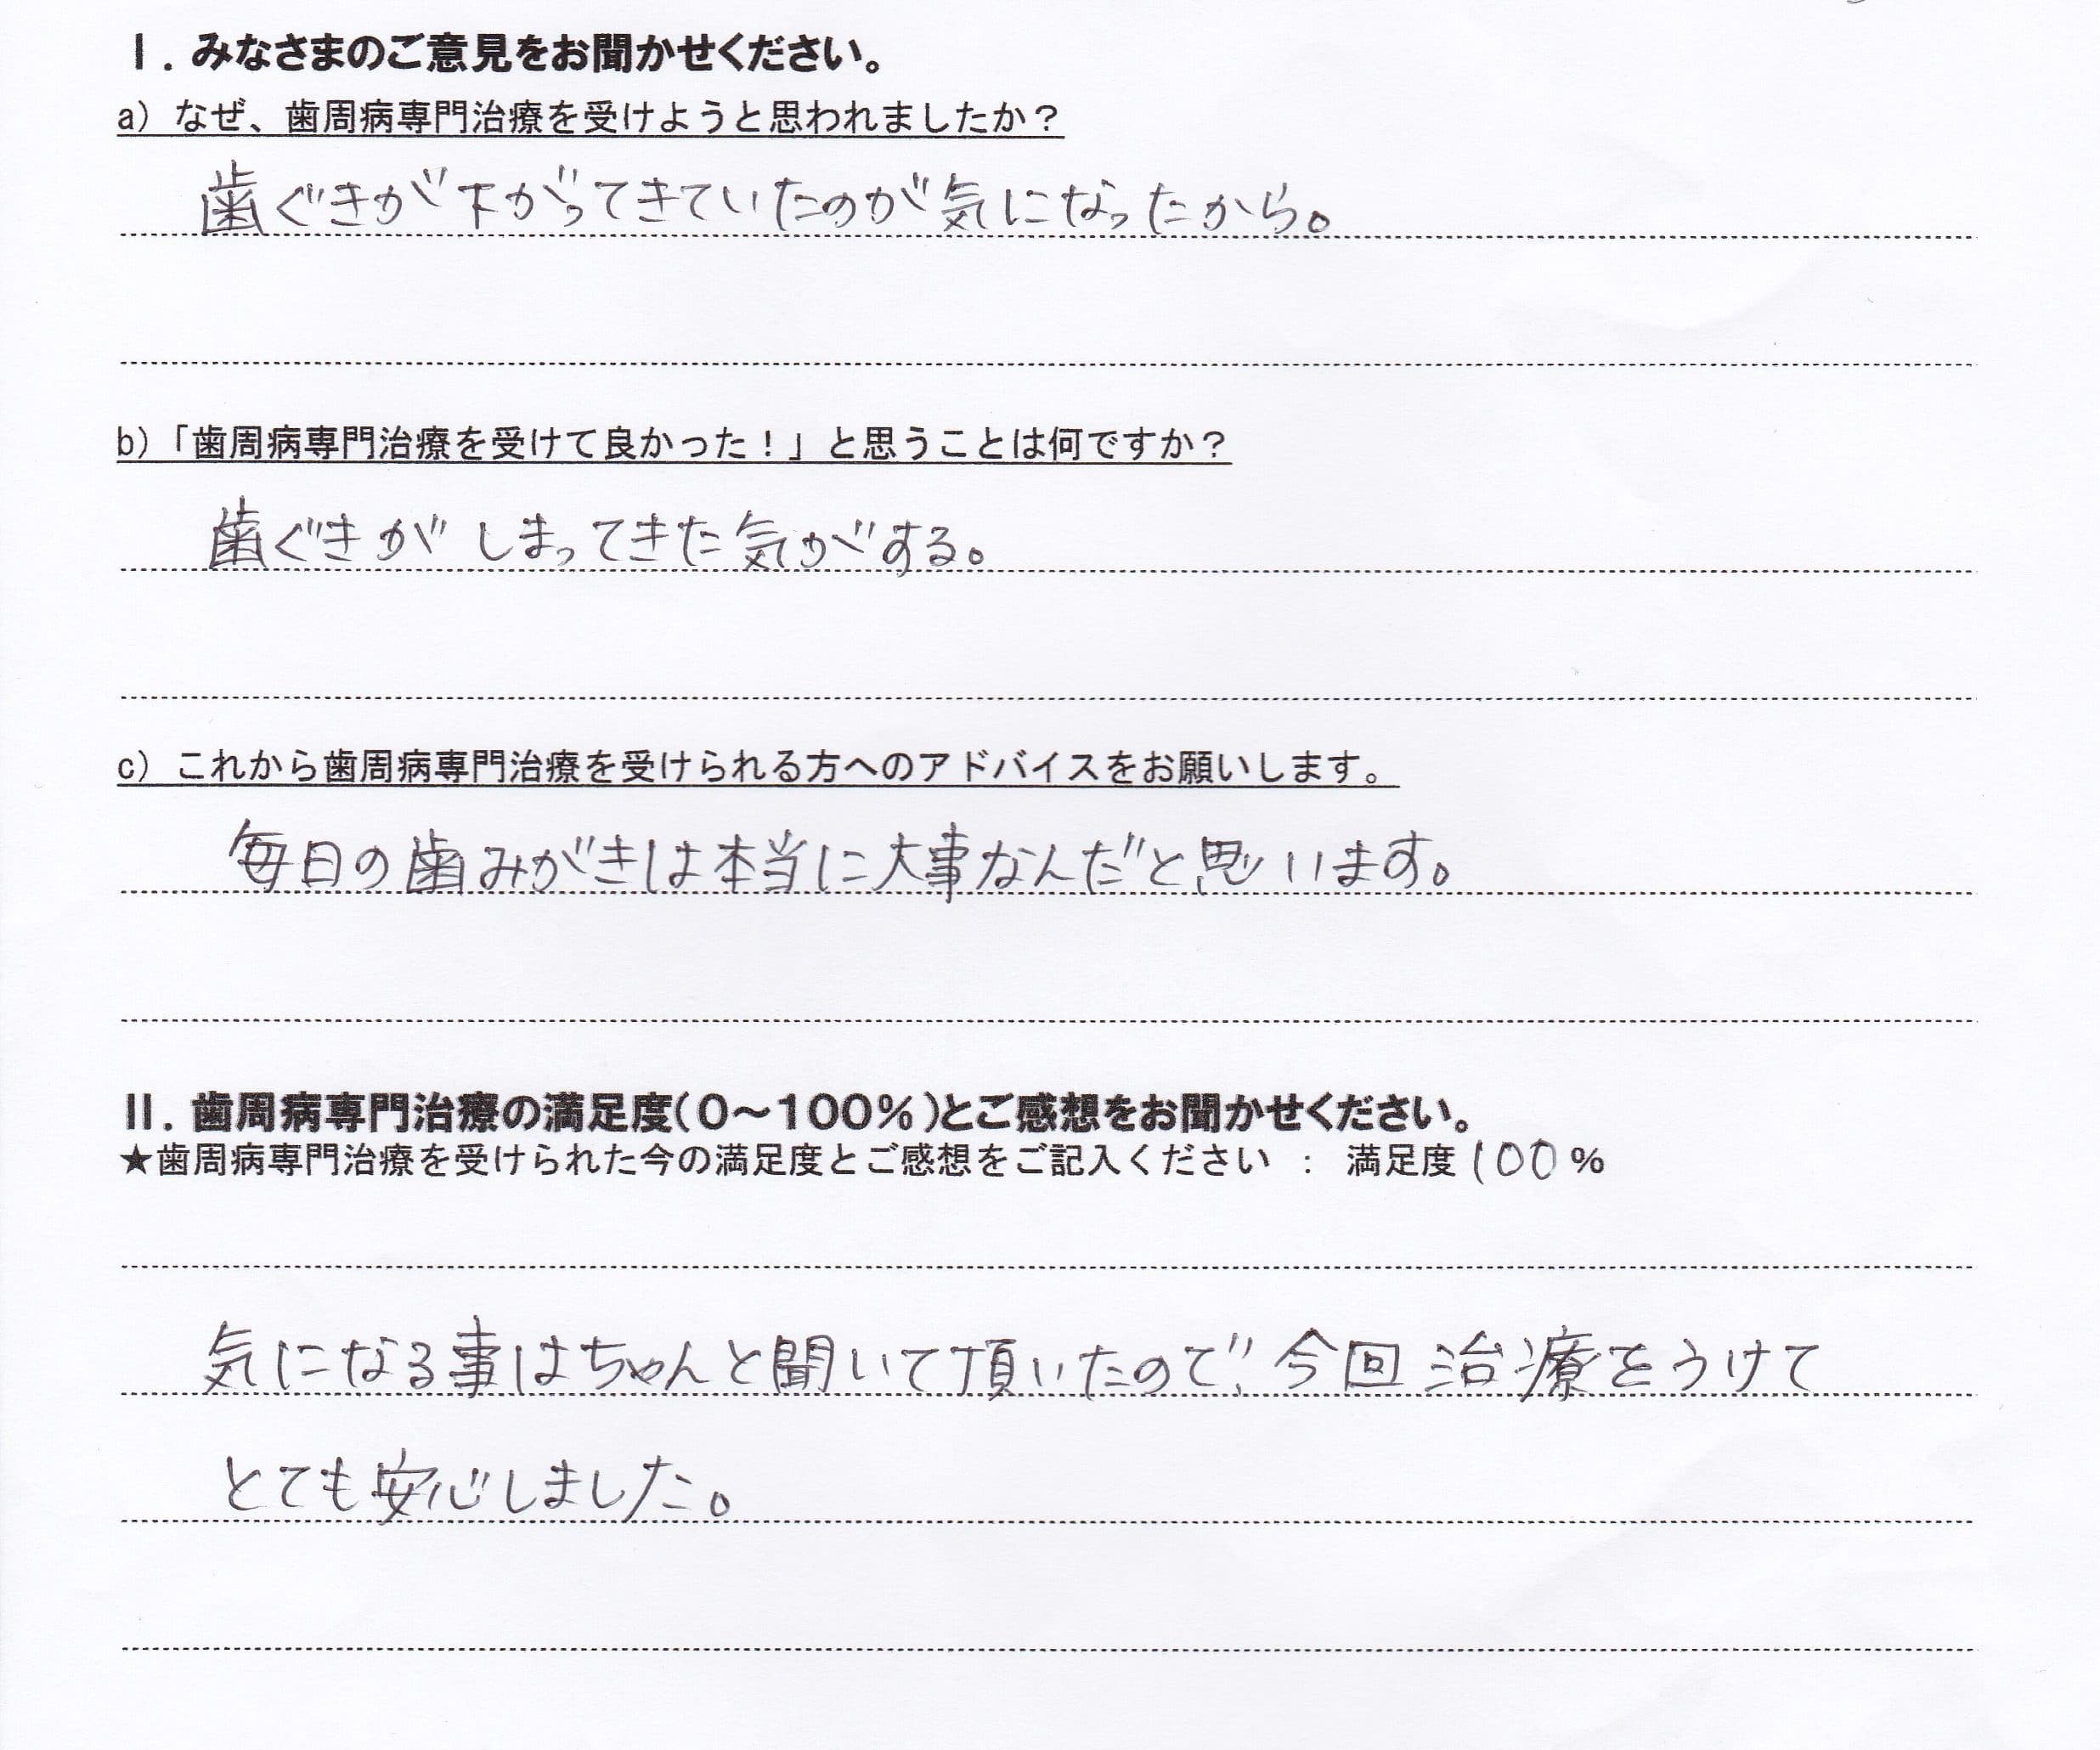 I. みなさまのご意見をお聞かせください。
a) なぜ、歯周病専門治療を受けようと思われましたか？
歯ぐきが下がってきていたのが気になったから。
b)「歯周病専門治療を受けて良かった！」と思うことは何ですか？
歯ぐきがしまってきた気がする。
c) これから歯周病専門治療を受けられる方へのアドバイスをお願いします。
毎日の歯みがきは本当に大事なんだと思います。
II. 歯周病専門治療の満足度(0～100%)とご感想をお聞かせください。
★歯周病専門治療を受けられた今の満足度とご感想をご記入ください ： 満足度 100 %
気になる事はちゃんと聞いて頂いたので、今回治療をうけて
とても安心しました。